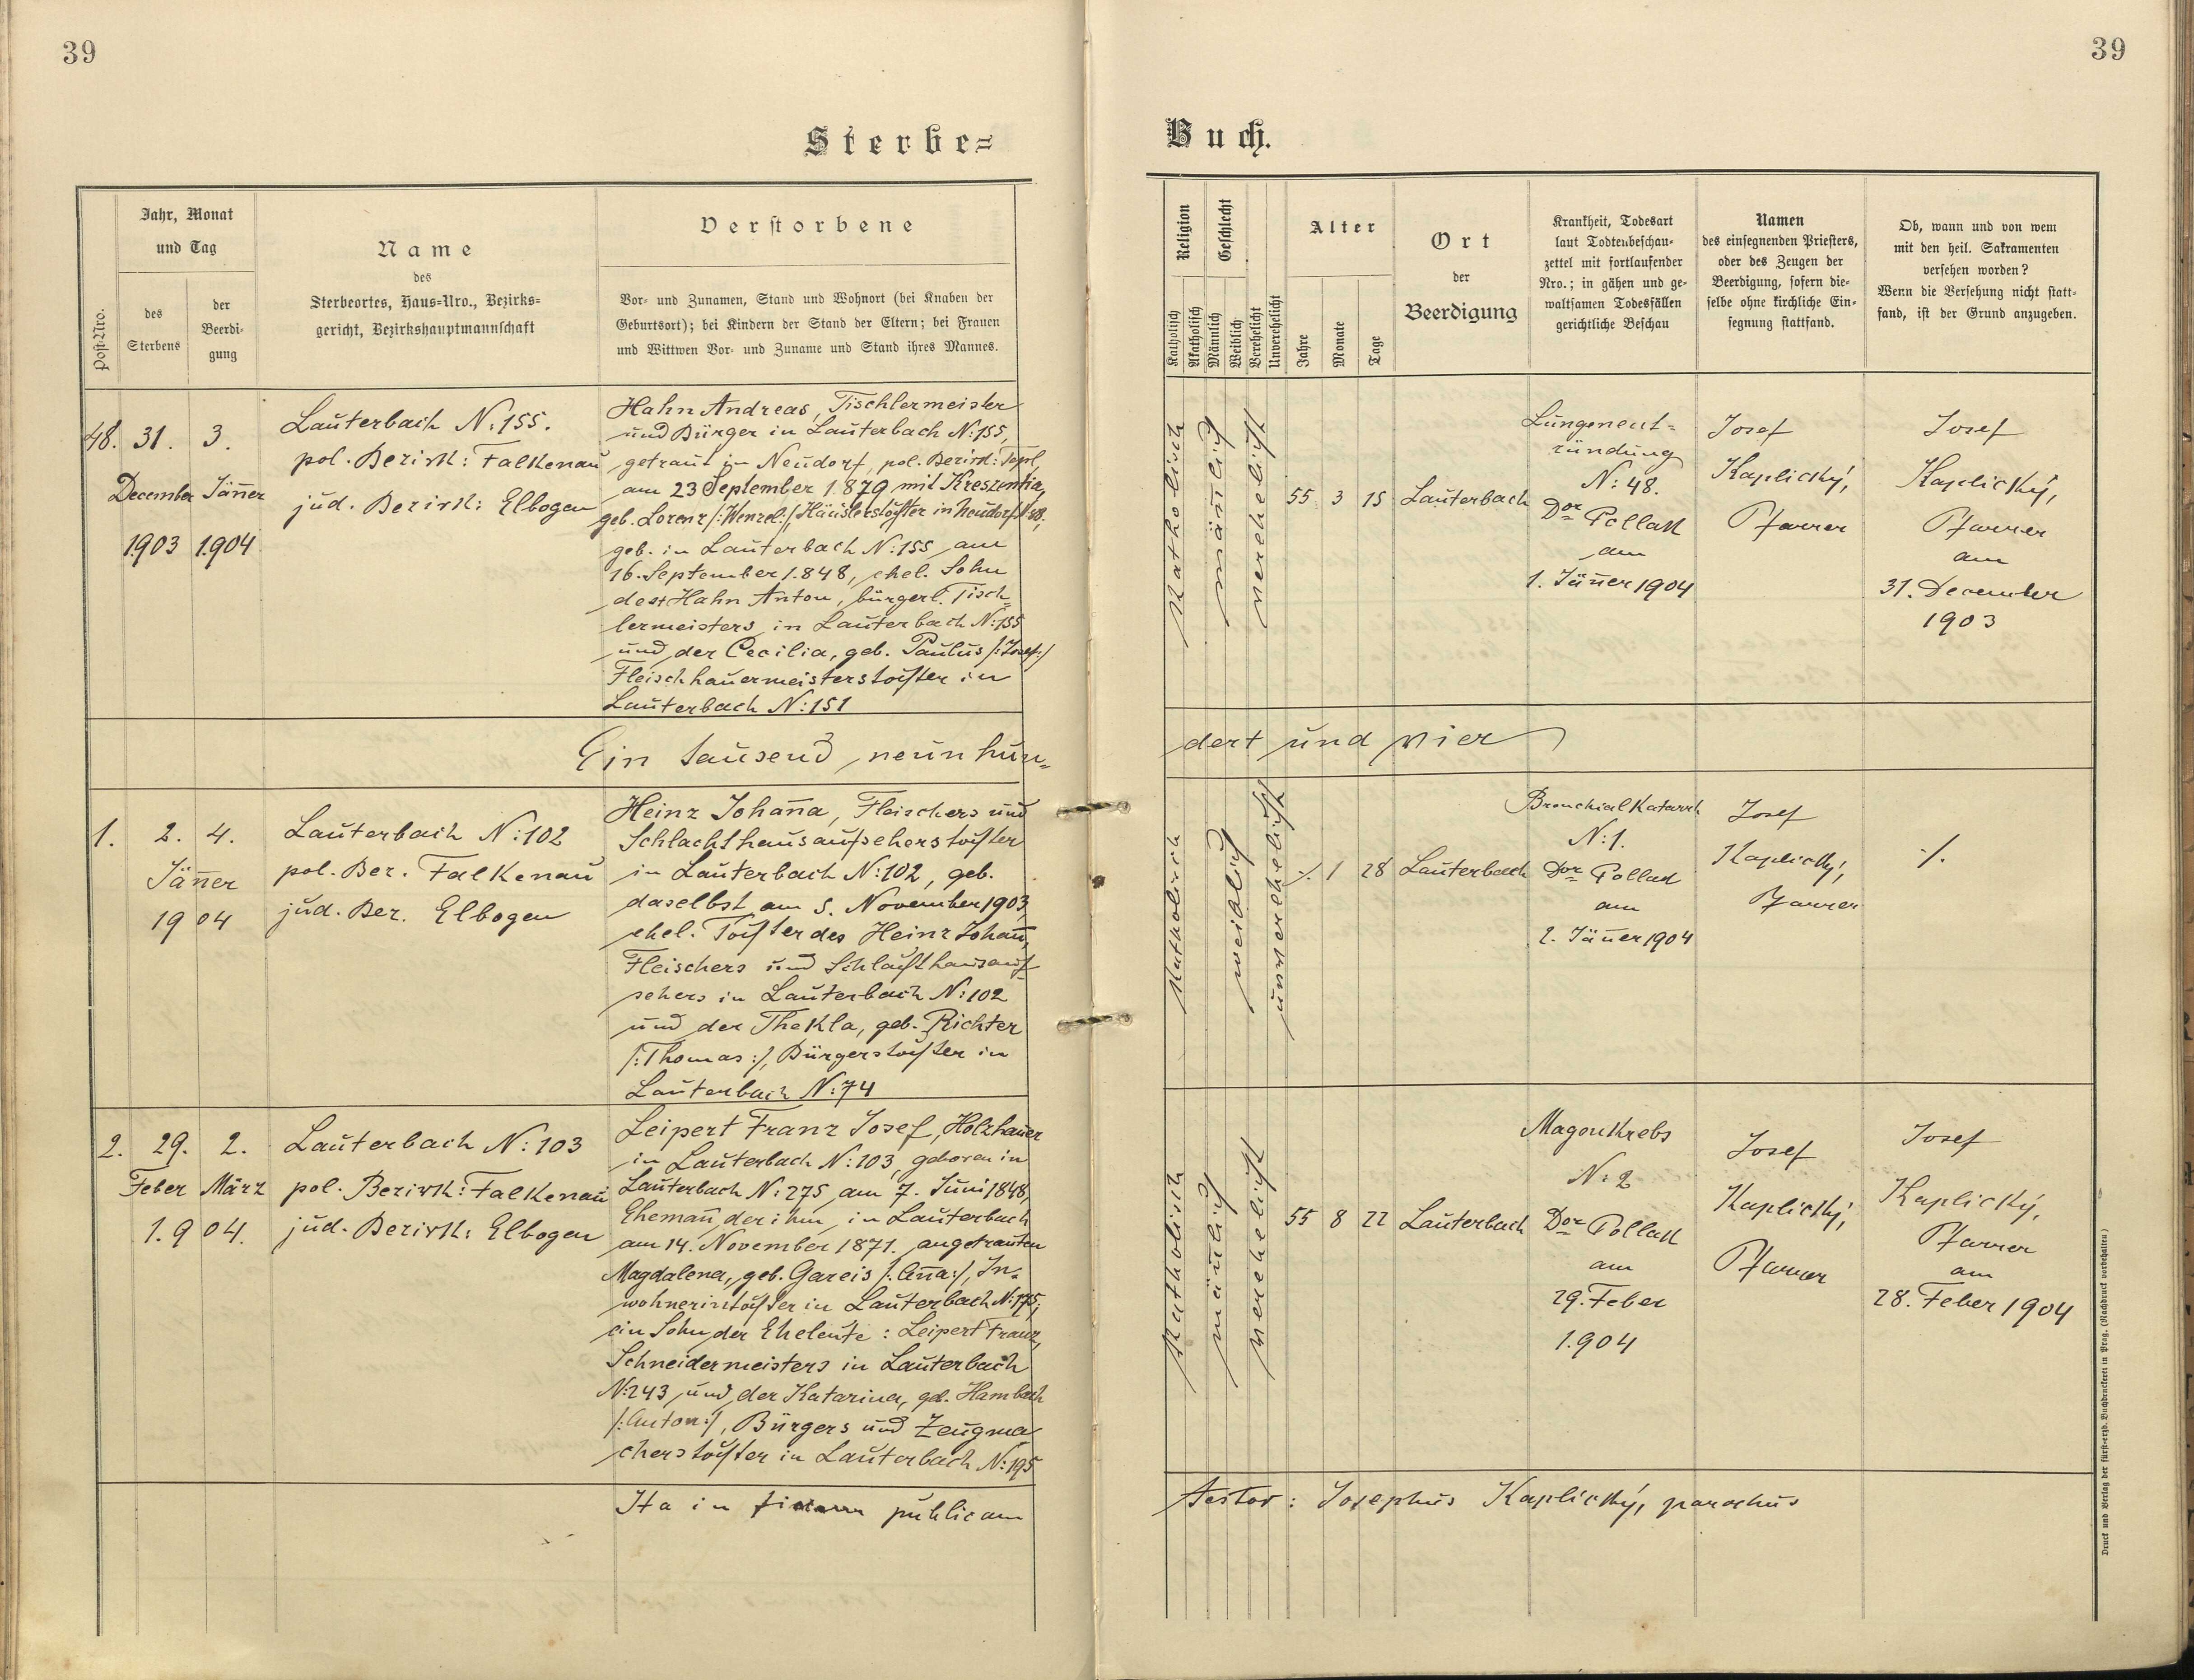 39
39
Sterbe=
Buch.
Post-Nro.
Jahr, Monat
und Tag
des
Sterbens
der
Beerdi-
gung
Name
des
Sterbeortes, Haus-Nro., Bezirks-
gericht, Bezirkshauptmannschaft
Verstorbene
Vor- und Zunamen, Stand und Wohnort (bei Knaben der
Geburtsort); bei Kindern der Stand der Eltern; bei Frauen
und Wittwen Vor- und Zuname und Stand ihres Mannes.
Religion
Katholisch
Akatholisch
Geschlecht
Männlich
Weiblich
Verehelicht
Unverehelicht
Alter
Jahre
Monate
Tage
Ort
der
Beerdigung
Krankheit, Todesart
laut Todtenbeschau-
zettel mit fortlaufender
Nro.; in gähen und ge-
waltsamen Todesfällen
gerichtliche Beschau
Namen
des einsegnenden Priesters,
oder des Zeugen der
Beerdigung, sofern die-
selbe ohne kirchliche Ein-
segnung stattfand.
Ob, wann und von wem
mit den heil. Sakramenten
versehen worden?
Wenn die Versehung nicht statt-
fand, ist der Grund anzugeben.
48. 31. 3.
December Jäner
1903 1904
Lauterbach N: 155.
pol. Bezirk: Falkenau
jud. Bezirk: Elbogen
Hahn Andreas, Tischlermeister
und Bürger in Lauterbach N: 155,
getraut in Neudorf, pol. Bezirk: Tepl,
am 23 September 1879 mit Kreszentia,
geb. Lorenz /:Wenzel:/ Häuslerstochter in Neudorf
geb. in Lauterbach N: 155 am
16. September 1848, ehel. Sohn
des + Hahn Anton, bürgerl. Tisch-
lermeisters in Lauterbach N: 155
und der Cecilia, geb. Paulus /:Josef:/
Fleischhauermeisterstochter in
Lauterbach N: 151
katholisch
männlich
verehelicht
55 3 15
Lauterbach
Lungenent-
zündung
N: 48.
Dor Pollak
am
1. Jäner 1904
Josef
Kaplický,
Pfarrer
Josef
Kaplický,
Pfarrer
am
31. December
1903
Ein tausend neunhun-
dert und vier
1. 2. 4.
Jäner
1904
Lauterbach N: 102
pol. Bez. Falkenau
jud. Bez. Elbogen
Heinz Johana, Fleischers und
Schlachthausaufseherstochter
in Lauterbach N: 102, geb.
daselbst am 5. November 1903,
ehel. Tochter des Heinz Johan,
Fleischers und Schlachthausauf
sehers in Lauterbach N: 102
und der Thekla, geb. Richter
/:Thomas:/, Bürgerstochter in
Lauterbach N: 74
katholisch
weiblich
unverehelicht
./. 1 28
Lauterbach
Bronchialkatarrh
N: 1.
Dor Pollak
am
2. Jäner 1904
Josef
Kaplický,
Pfarrer
./.
2. 29. 2.
Feber März
1904.
Lauterbach N: 103
pol. Bezirk: Falkenau
jud. Bezirk: Elbogen
Leipert Franz Josef, Holzhauer
in Lauterbach N: 103, geboren in
Lauterbach N: 275 am 7. Juni 1848,
Eheman der ihm in Lauterbach
am 14. November 1871. angetrauten
Magdalena, geb. Gareis /:Ana:/, In-
wohnerintochter in Lauterbach N: 175;
ein Sohn der Eheleute: Leipert Franz,
Schneidermeisters in Lauterbach
N: 243 und der Katarina, geb. Hambach
/:Anton:/, Bürgers und Zeugma
cherstochter in Lauterbach N: 195
katholisch
männlich
verehelicht
55 8 22
Lauterbach
Magenkrebs
N: 2
Dor Pollak
am
29. Feber
1904
Josef
Kaplický,
Pfarrer
Josef
Kaplický,
Pfarrer
am
28. Feber 1904
Ita in fidem publicam
Testor: Josephus Kaplický, parochus
Druck und Verlag der fürst-erzb. Buchdruckerei in Prag. (Nachdruck vorbehalten.)